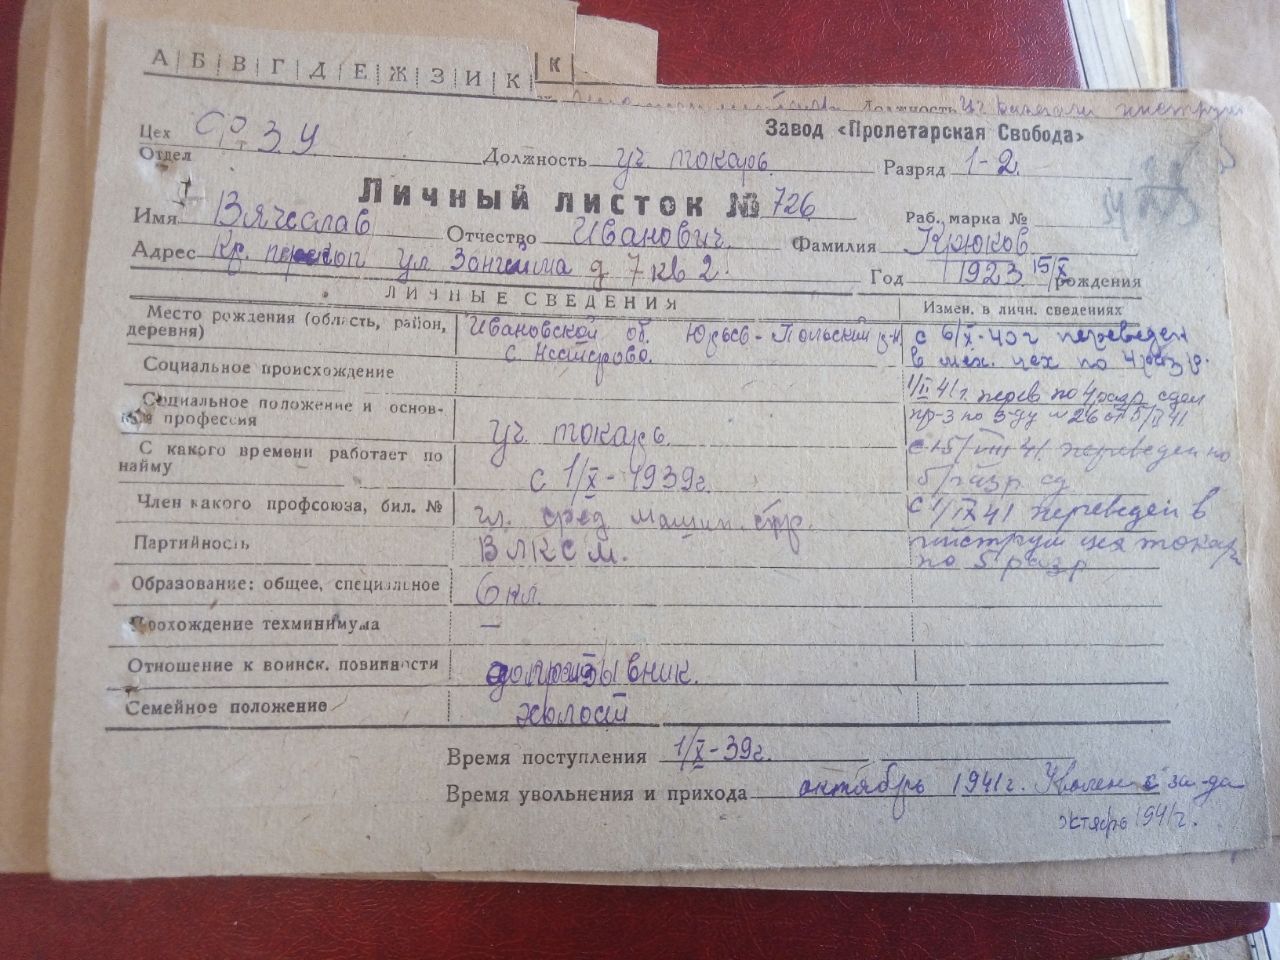 А Б В Г Д Е Ж З И К
К
Должность Уч
Завод «Пролетарская Свобода»
Цех
Отдел
Должность уч. токарь. Разряд 1-2.
Личный листок № 726
Раб. марка №
Имя Вячеслав Отчество Иванович. Фамилия Крюков
Адрес Кр. ул д 7 кв 2. Год 1923 15/X рождения
ЛИЧНЫЕ СВЕДЕНИЯ
Измен. в личн. сведениях
Место рождения (область, район, деревня) Ивановской об. Юрьев-Польский р-н
с.
с 6/X-40г переведен
в мех. цех по 4 разр.
Социальное происхождение
1/II 41г. перев по 4 разр сдел
пр-з по з-ду № 26 от 5/II 41
Социальное положение и основная профессия уч. токарь.
с 15/VIII 41 переведен по
разр сд
С какого времени работает по найму с 1/X-1939г.
Член какого профсоюза, бил. № сред машин. стр.
с 1/IX 41 переведен в
инструм цех токарь
по 5 разр
Партийность ВЛКСМ.
Образование: общее, специальное 6 кл.
Прохождение техминимума —
Отношение к воинск. повинности допризывник.
Семейное положение холост
Время поступления 1/X-39г.
Время увольнения и прихода октябрь 1941г. Уволен с за-да
октябрь 1941г.